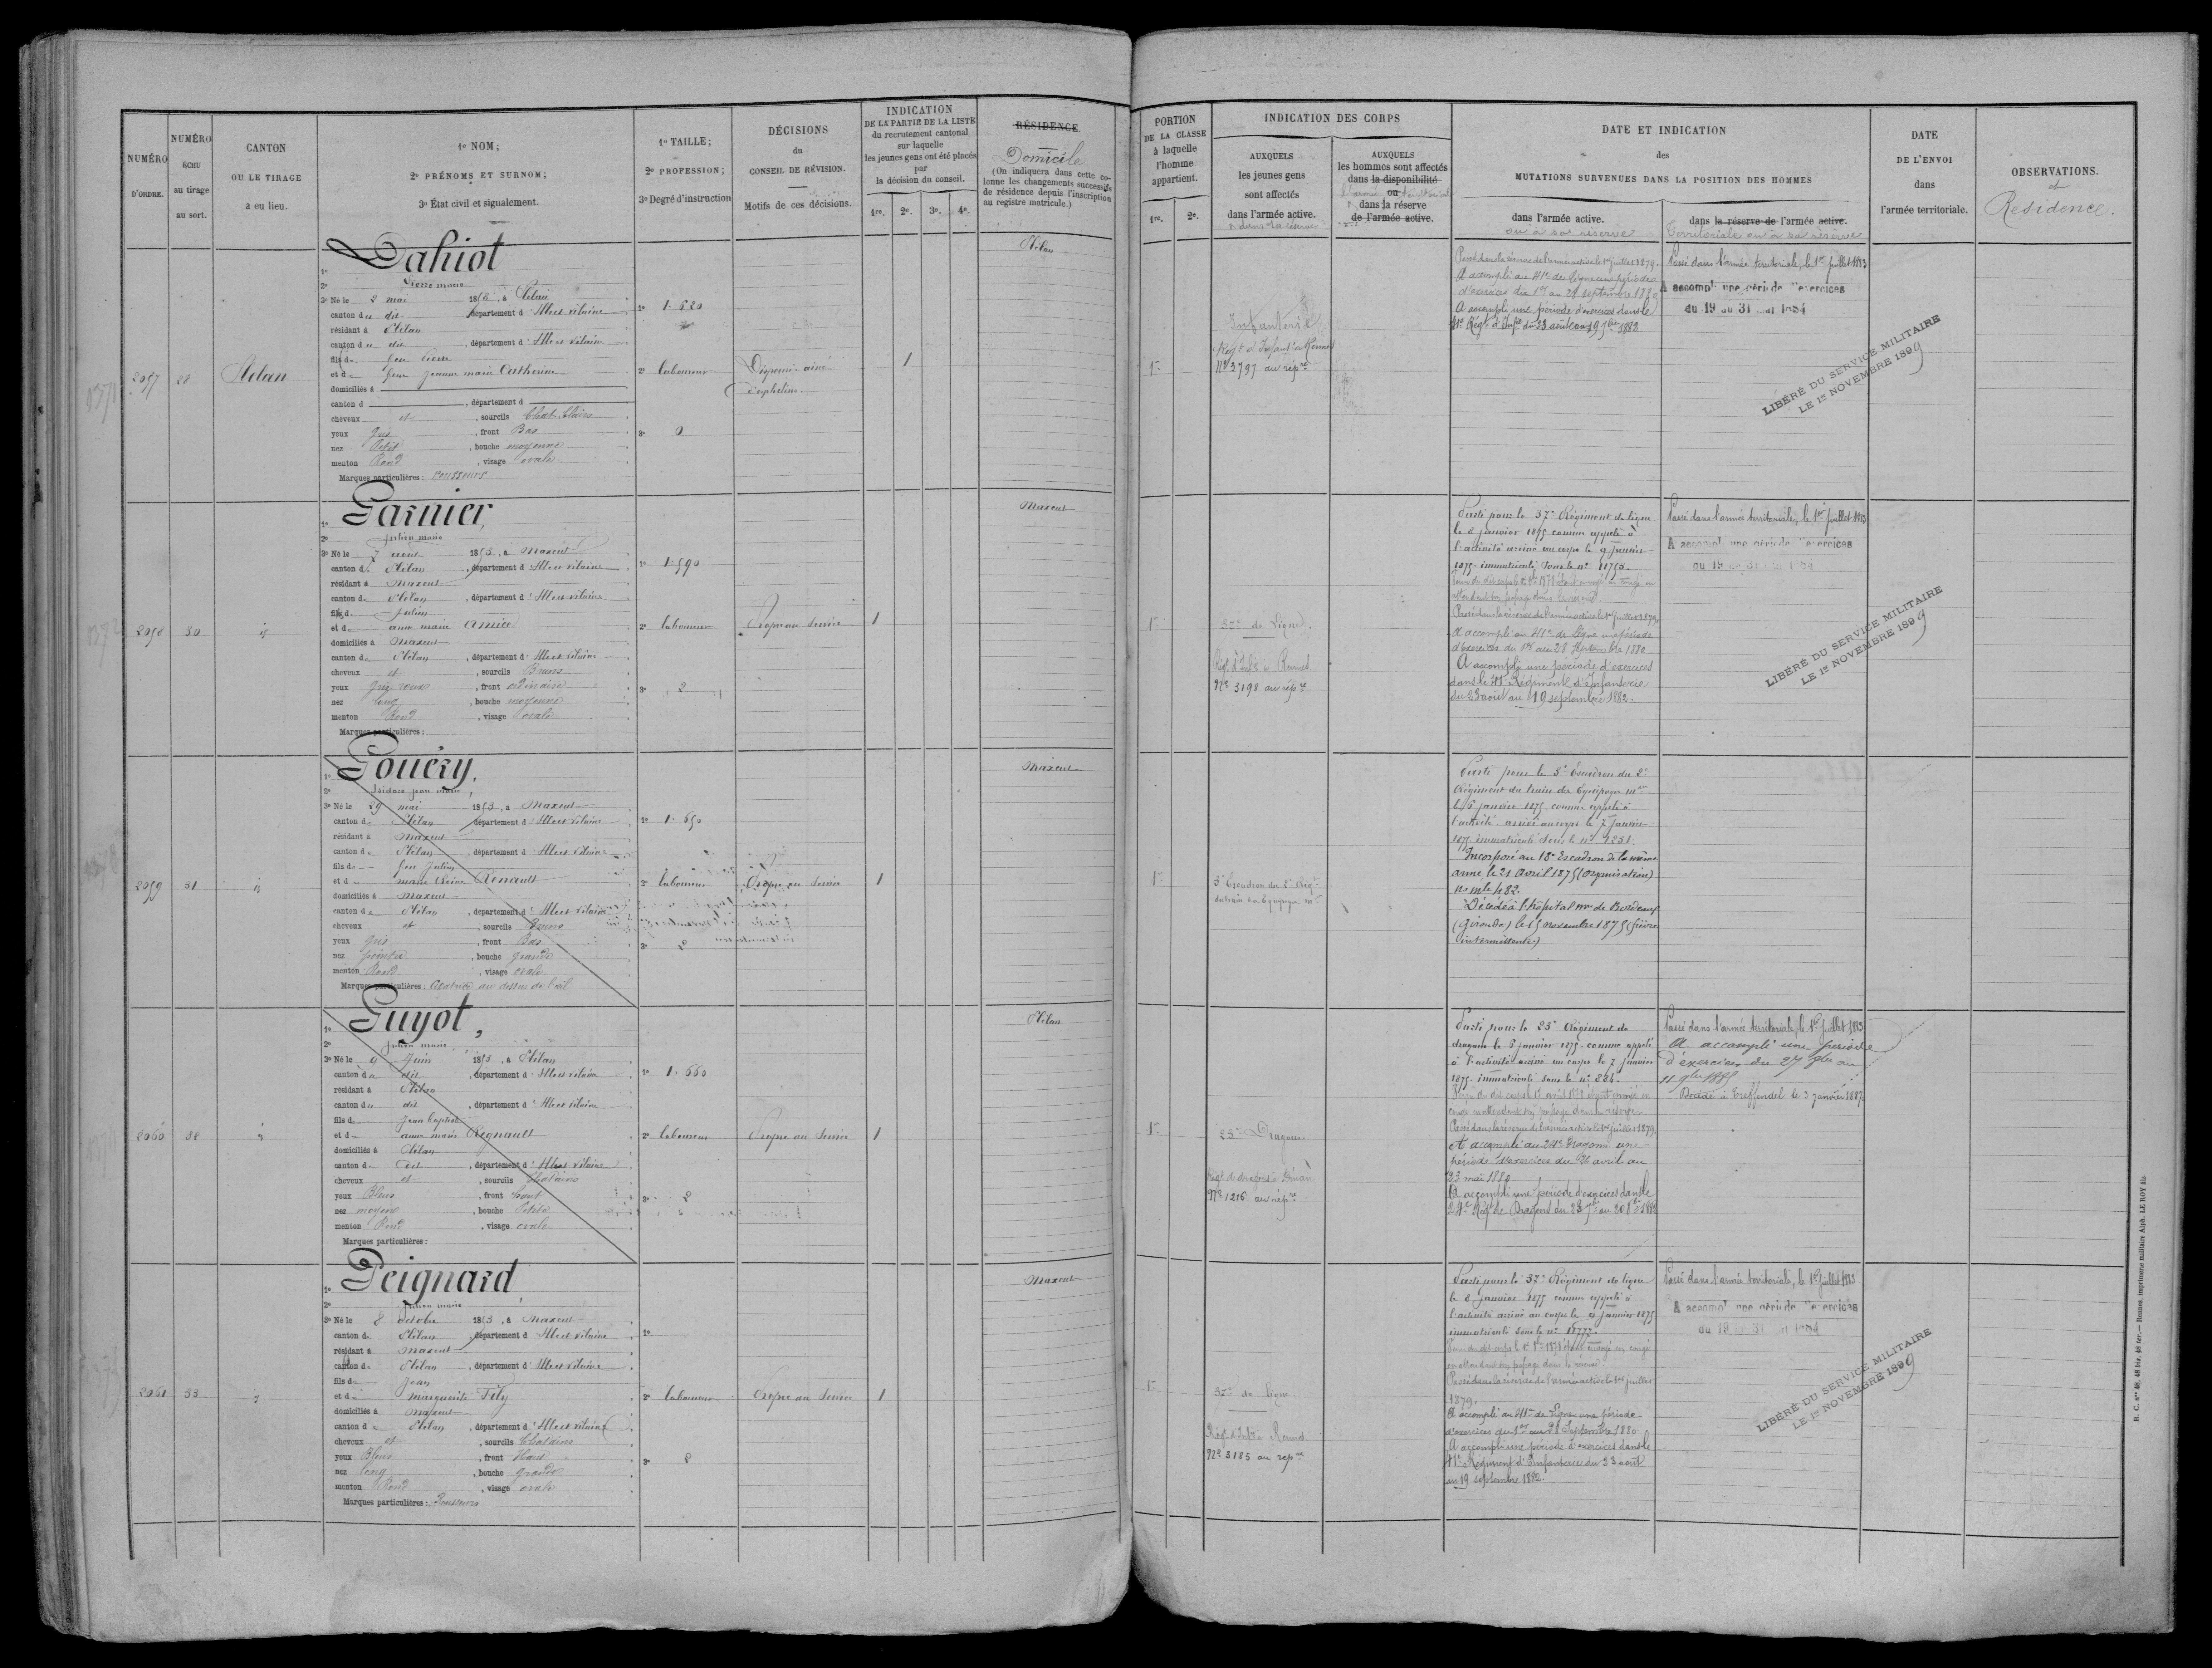 NUMÉRO
D'ORDRE.
NUMÉRO
ÉCHU
au tirage
au sort.
CANTON
OU LE TIRAGE
a eu lieu.
1º NOM;
2º PRÉNOMS ET SURNOM;
3º État civil et signalement.
1º TAILLE;
2º PROFESSION;
3º Degré d'instruction
DÉCISIONS
du
CONSEIL DE RÉVISION.
Motifs de ces décisions.
INDICATION
DE LA PARTIE DE LA LISTE
du recrutement cantonal
sur laquelle
les jeunes gens ont été placés
par
la décision du conseil.
1re. 2e. 3e. 4e.
RÉSIDENCE.
Domicile
(On indiquera dans cette co-
lonne les changements successifs
de résidence depuis l'inscription
au registre matricule.)
PORTION
DE LA CLASSE
à laquelle
l'homme
appartient.
1re. 2e.
INDICATION DES CORPS
AUXQUELS
les jeunes gens
sont affectés
dans l'armée active.
AUXQUELS
les hommes sont affectés
dans la disponibilité
ou
dans la réserve
de l'armée active.
DATE ET INDICATION
des
MUTATIONS SURVENUES DANS LA POSITION DES HOMMES
dans l'armée active.
ou à sa réserve
dans la réserve de l'armée active.
Territoriale ou à sa réserve
DATE
DE L'ENVOI
dans
l'armée territoriale.
OBSERVATIONS.
et
Résidence.
2057
28
Plélan
Dahiot
2º Pierre marie
3º Né le 2 mai 1853, à Plélan
canton du dit, département d'Ille et Vilaine
résidant à Plélan
canton du dit, département d'Ille et Vilaine
fils de feu Pierre
et de feue Jeanne marie Catherine
domiciliés à
canton d , département d
cheveux et , sourcils Chat. Clairs
yeux Gris , front Bas
nez Petit , bouche moyenne
menton Rond , visage ovale
Marques particulières : rousseurs
1º 1.620
2º laboureur
3º 0
Dispensé ainé
d'orphelins.
1
Plélan
1re
Infanterie
Régt d'Infant. à Rennes
Nº 3797 au répre
Passé dans la réserve de l'armée active le 1er juillet 1879.
A accompli au 41e de ligne une période
d'exercices du 1er au 28 septembre 1880
A accompli une période d'exercices dans le
41e Régt d'Infie du 23 août au 19 7bre 1882
Passé dans l'armée territoriale, le 1er juillet 1883
A accompli une période d'exercices
du 19 au 31 mai 1884
LIBÉRÉ DU SERVICE MILITAIRE
LE 1er NOVEMBRE 1899
2058
30
id
Garnier,
2º Julien marie
3º Né le 7 août 1853, à Maxent
canton de Plélan , département d'Ille et Vilaine
résidant à Maxent
canton de Plélan , département d'Ille et Vilaine
fils de Julien
et de anne marie Amice
domiciliés à Maxent
canton de Plélan , département d'Ille et Vilaine
cheveux et , sourcils Bruns
yeux Gris roux , front ordinaire
nez long , bouche moyenne
menton Rond , visage ovale
Marques particulières :
1º 1.590
2º laboureur
3º 2
Propre au service
1
Maxent
1re
37e de Ligne.
Régt d'Infie à Rennes
Nº 3198 au répre
Parti pour le 37e Régiment de ligne
le 8 janvier 1875 comme appelé à
l'activité arrivé au corps le 9 janvier
1875 immatriculé sous le nº 11753.
Passé dans la réserve de l'armée active le 1er juillet 1879
A accompli au 41e de ligne une période
d'exercices du 1er au 28 Septembre 1880
A accompli une période d'exercices
dans le 41e Régiment d'Infanterie
du 23 août au 19 septembre 1882.
Passé dans l'armée territoriale, le 1er juillet 1883
A accompli une période d'exercices
du 19 au 31 mai 1884
LIBÉRÉ DU SERVICE MILITAIRE
LE 1er NOVEMBRE 1899
2059
31
id
Gouéry,
2º Isidore jean marie
3º Né le 29 mai 1853, à Maxent
canton de Plélan , département d'Ille et Vilaine
résidant à Maxent
canton de Plélan , département d'Ille et Vilaine
fils de feu Julien
et de marie Reine Renault
domiciliés à Maxent
canton de Plélan , département d'Ille et Vilaine
cheveux et , sourcils Bruns
yeux Gris , front Bas
nez pointu , bouche grande
menton Rond , visage ovale
Marques particulières : Cicatrice au dessus de l'œil
1º 1.650
2º laboureur
3º 2
Propre au Service
1
Maxent
1re
3e Escadron du 2e Régt
du train des Equipages mres
Parti pour le 3e Escadron du 2e
Régiment du train des Equipages mres
le 6 janvier 1875 comme appelé à
l'activité arrivé au corps le 7 janvier
1875 immatriculé sous le nº 1231.
Incorporé au 18e Escadron de la même
arme, le 21 avril 1875 (Organisation)
nº mle 482.
Décédé à l'hôpital mre de Bordeaux
(Gironde) le 15 novembre 1875 (fièvre
intermittente)
2060
32
id
Guyot,
2º Julien marie
3º Né le 9 juin 1853, à Plélan
canton du dit , département d'Ille et Vilaine
résidant à Plélan
canton du dit , département d'Ille et Vilaine
fils de Jean Baptiste
et de anne marie Regnault
domiciliés à Plélan
canton du dit , département d'Ille et Vilaine
cheveux et , sourcils Chatains
yeux Bleus , front haut
nez moyen , bouche Petite
menton Rond , visage ovale
Marques particulières :
1º 1.660
2º laboureur
3º 2
Propre au Service
1
Plélan
1re
23e Dragons
Régt de dragons à Dinan
Nº 1216 au répre
Parti pour le 23e Régiment de
dragons le 6 janvier 1875 comme appelé
à l'activité arrivé au corps le 7 janvier
1875 immatriculé sous le nº 884.
Passé dans la réserve de l'armée active le 1er juillet 1879
A accompli au 24e Dragons une
période d'exercices du 26 avril au
23 mai 1880
A accompli une période d'exercices dans le
24e Régt de Dragons du 23 7bre au 20 8bre 1882
Passé dans l'armée territoriale, le 1er juillet 1883
A accompli une période
d'exercices du 27 8bre au
11 9bre 1885
Décédé à Treffendel le 3 janvier 1887
2061
33
id
Peignard,
2º Julien marie
3º Né le 8 octobre 1853, à Maxent
canton de Plélan , département d'Ille et Vilaine
résidant à Maxent
canton de Plélan , département d'Ille et Vilaine
fils de Jean
et de Marguerite Fily
domiciliés à Maxent
canton de Plélan , département d'Ille et Vilaine
cheveux et , sourcils Chatains
yeux Bleus , front Haut
nez long , bouche grande
menton Rond , visage ovale
Marques particulières : Rousseurs
1º
2º laboureur
3º 2
Propre au Service
1
Maxent
1re
37e de ligne
Régt d'Infie à Rennes
Nº 3185 au répre
Parti pour le 37e Régiment de ligne
le 8 janvier 1875 comme appelé à
l'activité arrivé au corps le 9 janvier 1875
immatriculé sous le nº 11777.
Passé dans la réserve de l'armée active le 1er juillet
1879.
A accompli au 41e de Ligne une période
d'exercices du 1er au 28 Septembre 1880
A accompli une période d'exercices dans le
41e Régiment d'Infanterie du 23 août
au 19 septembre 1882.
Passé dans l'armée territoriale, le 1er juillet 1883
A accompli une période d'exercices
du 19 au 31 mai 1884
LIBÉRÉ DU SERVICE MILITAIRE
LE 1er NOVEMBRE 1899
R. C. nos 48, 48 bis, 48 ter. — Rennes, imprimerie militaire Alph. LE ROY fils